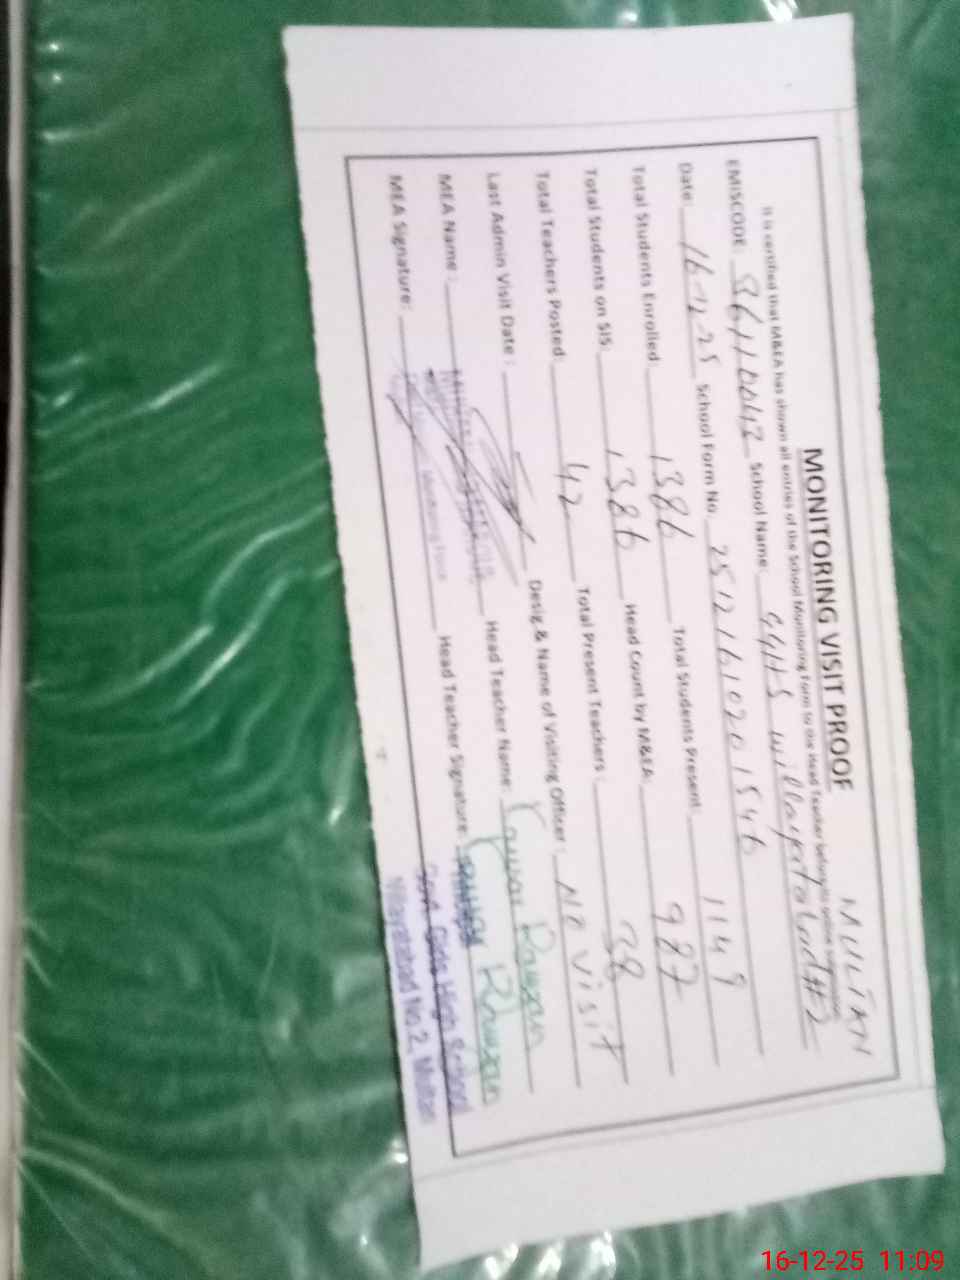 MULTAN
MONITORING VISIT PROOF
It is certified that M&EA has shown all entries of the School Monitoring Form to the Head Teacher before
EMISCODE: 36110042 School Name: GGHS willayatabad #2
Date: 16-12-25 School Form No. 2512161020 1546
Total Students Enrolled: 1386 Total Students Present: 1149
Total Students on SIS: 1386 Head Count by M&EA: 987
Total Teachers Posted: 42 Total Present Teachers: 38
Last Admin Visit Date: Desig & Name of Visiting Officer: No visit
MEA Name: Head Teacher Name:
MEA Signature: Head Teacher Signature:
Govt. Girls High School
Wilayatabad No.2, Multan
16-12-25 11:09